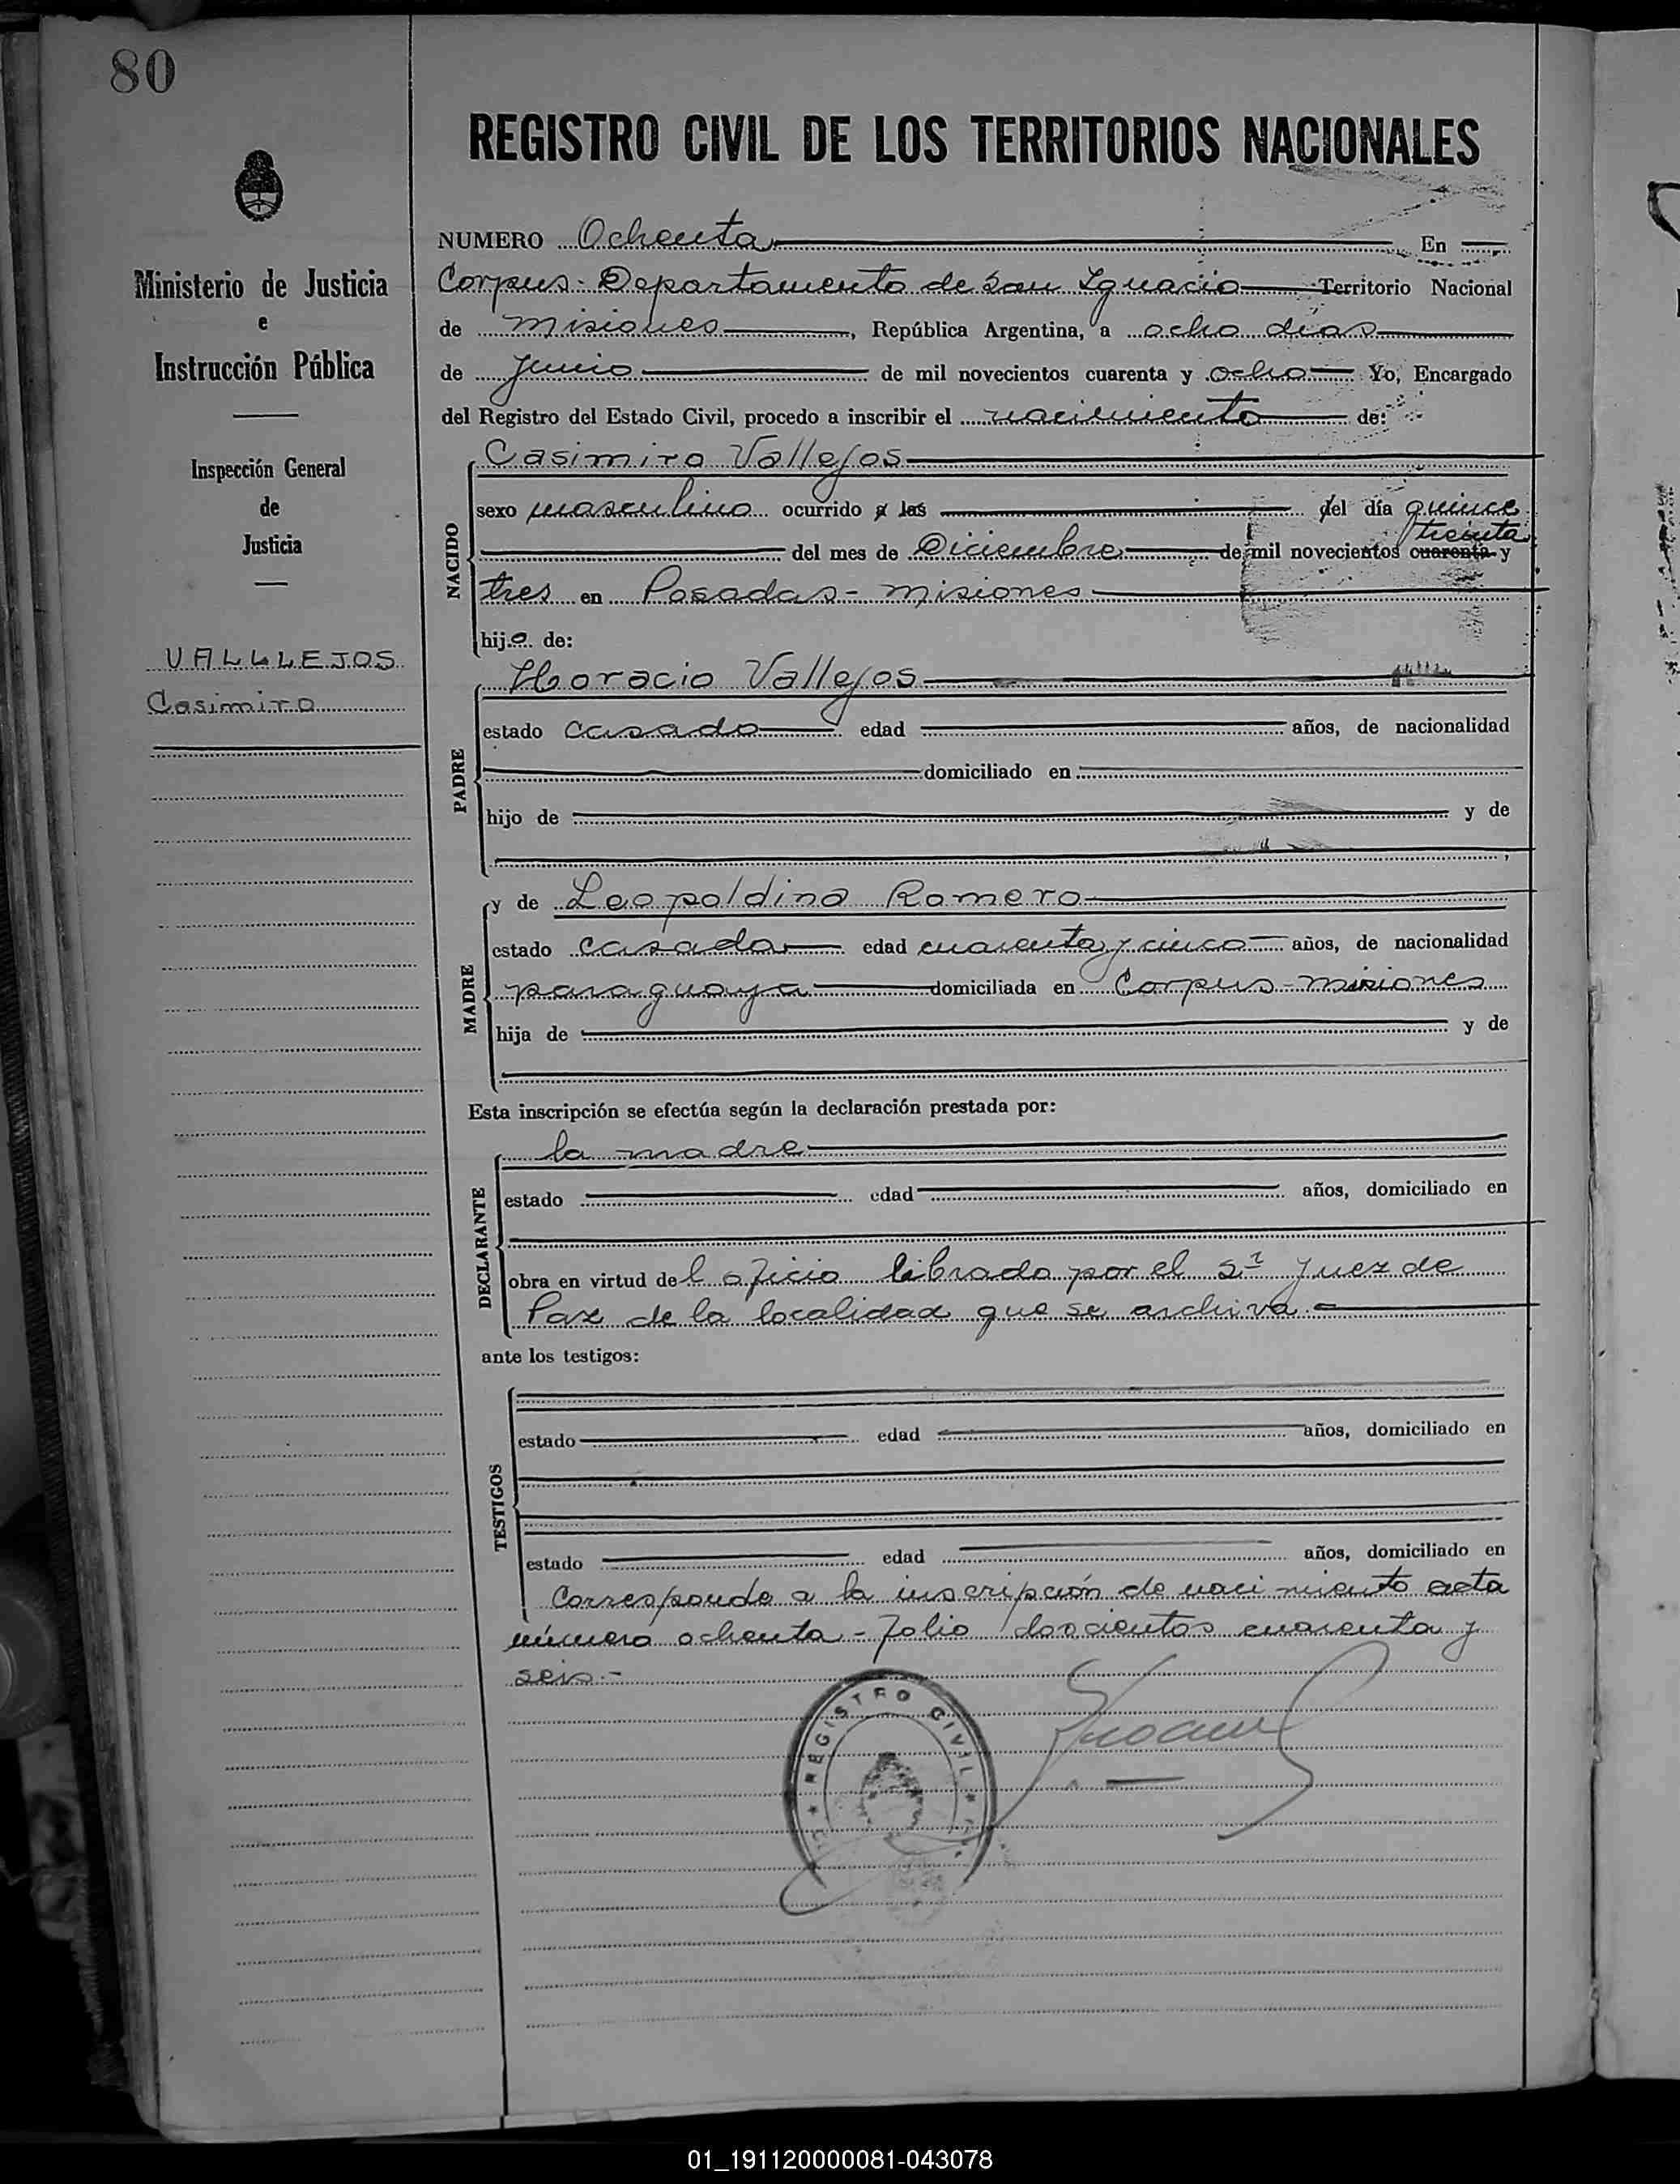 80
REGISTRO CIVIL DE LOS TERRITORIOS NACIONALES
Ministerio de Justicia
e
Instrucción Pública
Inspección General
de
Justicia
VALLLEJOS
Casimiro
NUMERO Ochenta En
Corpus - Departamento de San Ignacio Territorio Nacional
de Misiones, República Argentina, a ocho días
de Junio de mil novecientos cuarenta y ocho Yo, Encargado
del Registro del Estado Civil, procedo a inscribir el nacimiento de:
NACIDO
Casimiro Vallejos
sexo masculino ocurrido a las del día quince
treinta
del mes de Diciembre de mil novecientos cuarenta y
tres en Posadas - Misiones
hijo de:
PADRE
Horacio Vallejos
estado casado edad años, de nacionalidad
domiciliado en
hijo de y de
MADRE
y de Leopoldina Romero
estado casada edad cuarenta y cinco años, de nacionalidad
paraguaya domiciliada en Corpus - Misiones
hija de y de
Esta inscripción se efectúa según la declaración prestada por:
DECLARANTE
la madre
estado edad años, domiciliado en
obra en virtud del oficio librado por el Sr Juez de
Paz de la localidad que se archiva.
ante los testigos:
TESTIGOS
estado edad años, domiciliado en
estado edad años, domiciliado en
Corresponde a la inscripción de nacimiento acta
número ochenta - folio doscientos cuarenta y
seis.-
REGISTRO CIVIL
01_191120000081-043078